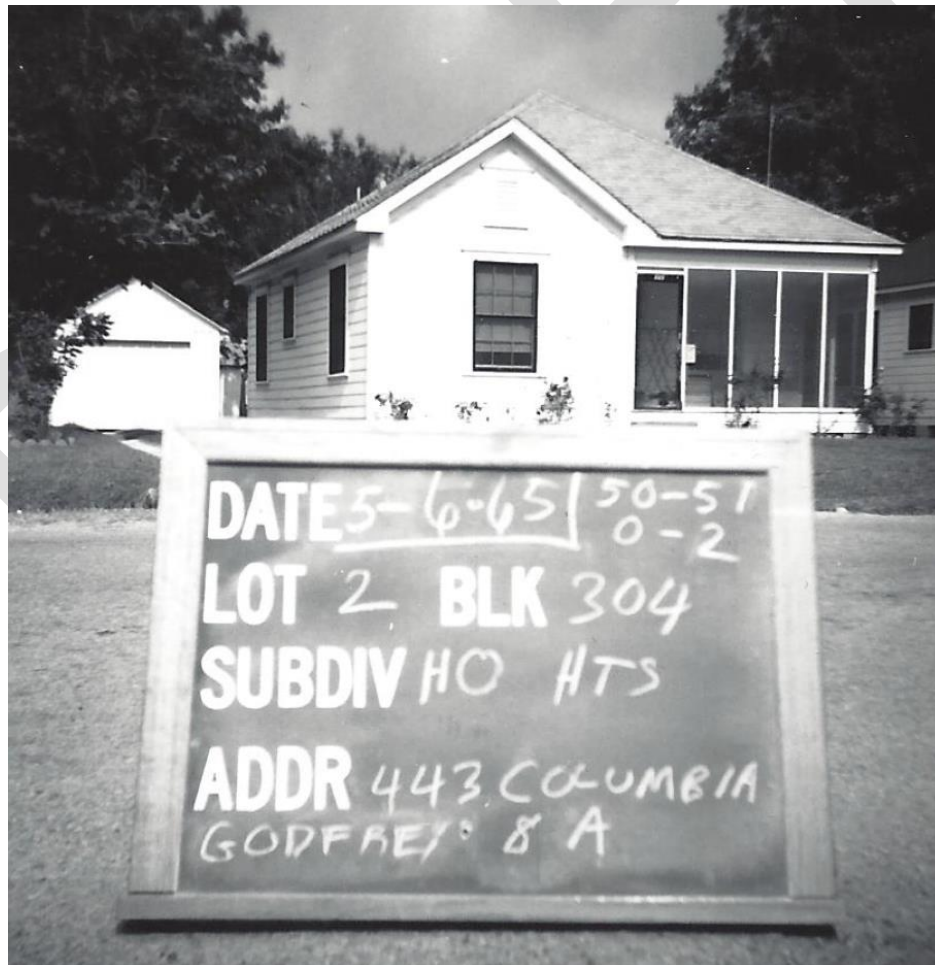 DATE 5-6-65 50-51
0-2
LOT 2 BLK 304
SUBDIV HO HTS
ADDR 443 COLUMBIA
GODFREY 8 A